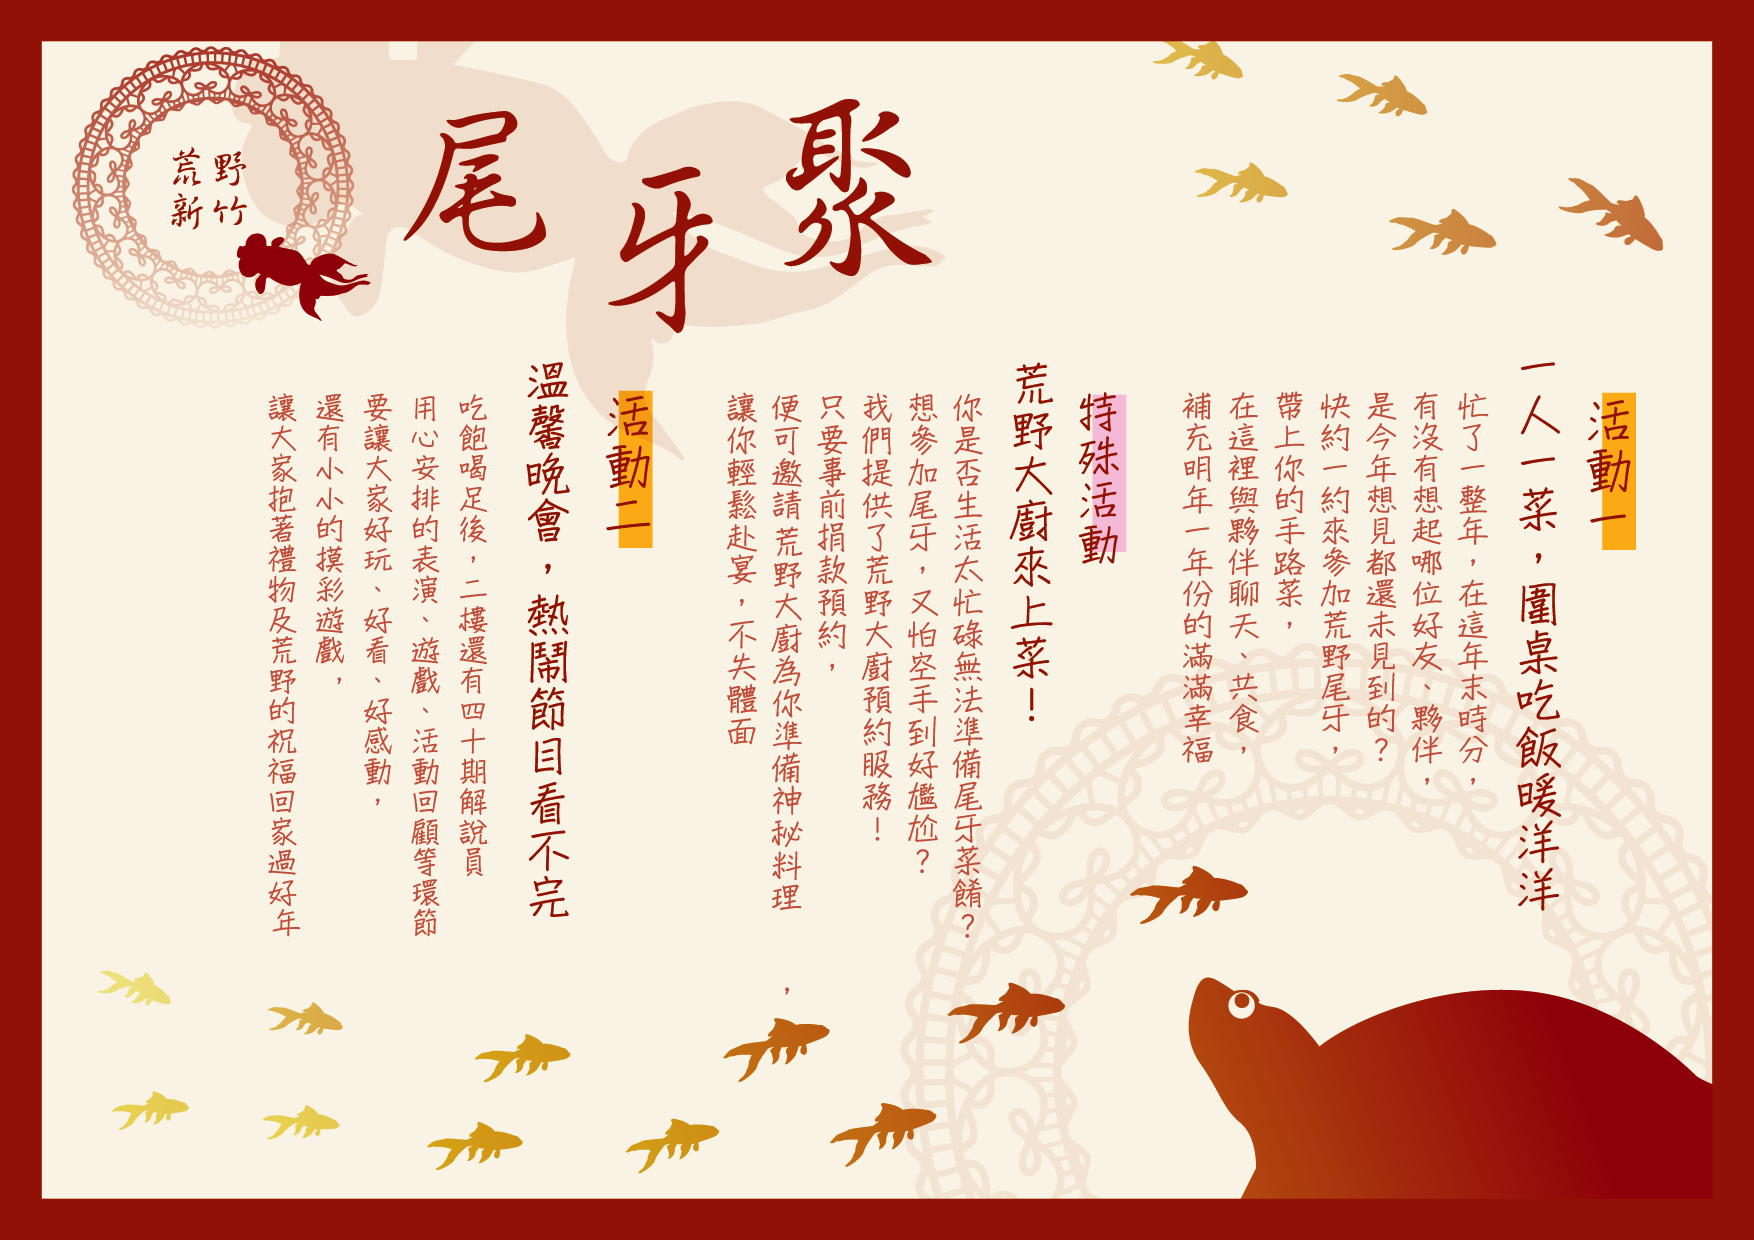 荒野
新竹
尾牙聚
活動一
一人一菜，圍桌吃飯暖洋洋
忙了一整年，在這年末時分，
有沒有想起哪位好友、夥伴，
是今年想見都還未見到的？
快約一約來參加荒野尾牙，
帶上你的手路菜，
在這裡與夥伴聊天、共食，
補充明年一年份的滿滿幸福
特殊活動
荒野大廚來上菜！
你是否生活太忙碌無法準備尾牙菜餚？
想參加尾牙，又怕空手到好尷尬？
我們提供了荒野大廚預約服務！
只要事前捐款預約，
便可邀請荒野大廚為你準備神秘料理，
讓你輕鬆赴宴，不失體面
活動二
溫馨晚會，熱鬧節目看不完
吃飽喝足後，二樓還有四十期解說員
用心安排的表演、遊戲、活動回顧等環節
要讓大家好玩、好看、好感動，
還有小小的摸彩遊戲，
讓大家抱著禮物及荒野的祝福回家過好年